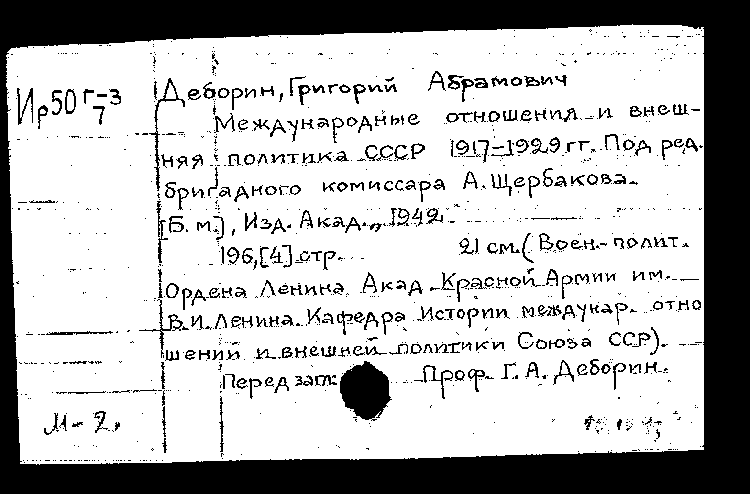 Ир50 г-3
7
Деборин, Григорий Абрамович
Международные отношения и внеш-
няя политика СССР 1917-1929 гг. Под ред.
бригадного комиссара А. Щербакова.
[Б. м.], Изд. Акад., 1942.
196,[4] стр. 21 см. (Воен.-полит.
Ордена Ленина Акад. Красной Армии им.
В.И. Ленина. Кафедра Истории междунар. отно
шений и внешней политики Союза ССР).
Перед загл: Проф. Г. А. Деборин.
М-2,